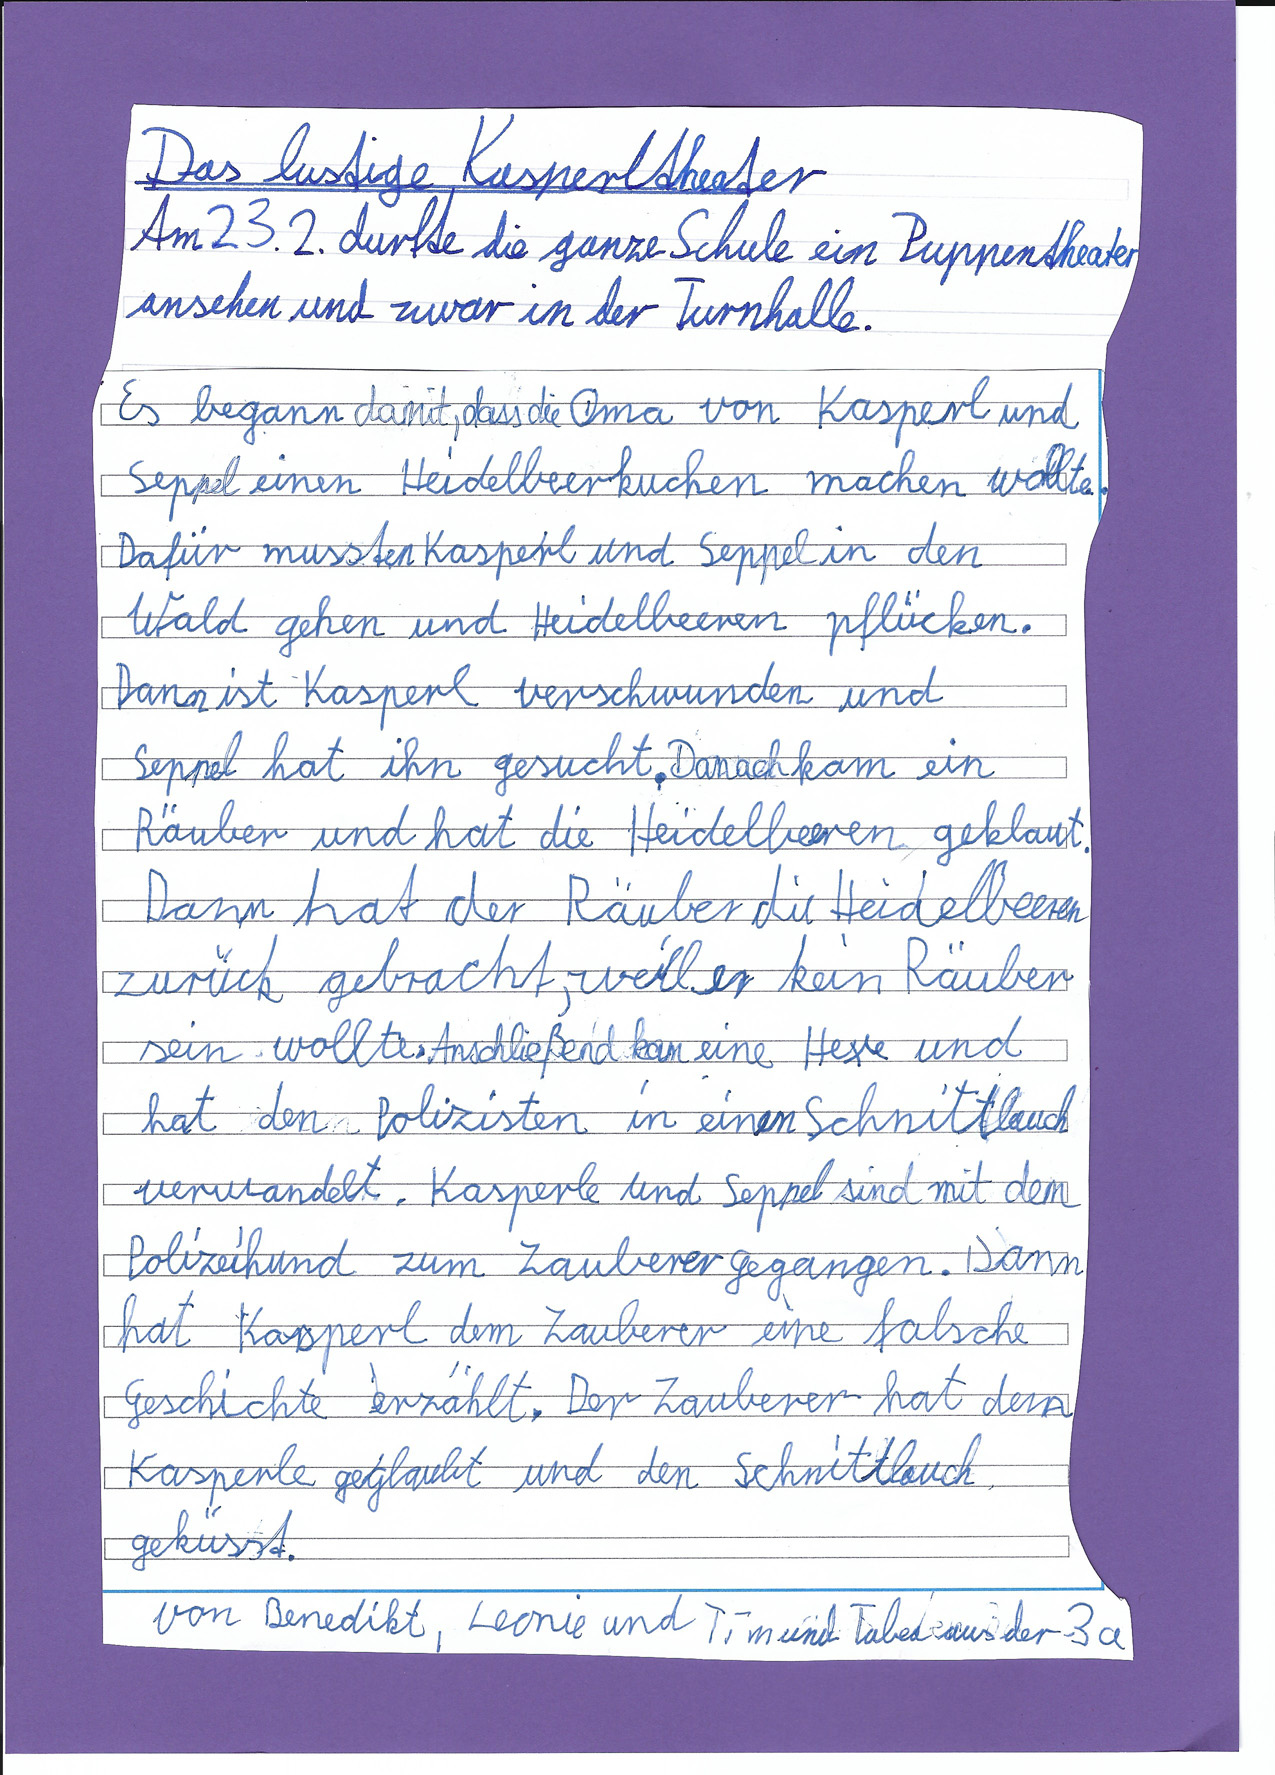 Das lustige Kasperltheater
Am 23.2. durfte die ganze Schule ein Puppentheater
ansehen und zwar in der Turnhalle.
Es begann damit, dass die Oma von Kasperl und
Seppel einen Heidelbeerkuchen machen wollte.
Dafür mussten Kasperl und Seppel in den
Wald gehen und Heidelbeeren pflücken.
Dann ist Kasperl verschwunden und
Seppel hat ihn gesucht. Danach kam ein
Räuber und hat die Heidelbeeren geklaut.
Dann hat der Räuber die Heidelbeeren
zurück gebracht, weil er kein Räuber
sein wollte. Anschließend kam eine Hexe und
hat den Polizisten in einen Schnittlauch
verwandelt. Kasperle und Seppel sind mit dem
Polizeihund zum Zauberer gegangen. Dann
hat Kasperl dem Zauberer eine falsche
Geschichte erzählt. Der Zauberer hat dem
Kasperle geglaubt und den Schnittlauch
geküsst.
von Benedikt, Leonie und Tim und Tabea aus der 3a